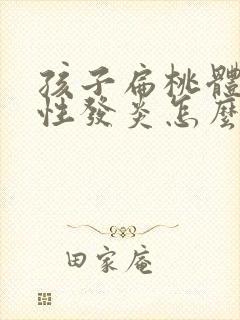 孩子扁桃體
性發炎怎麼
田家庵